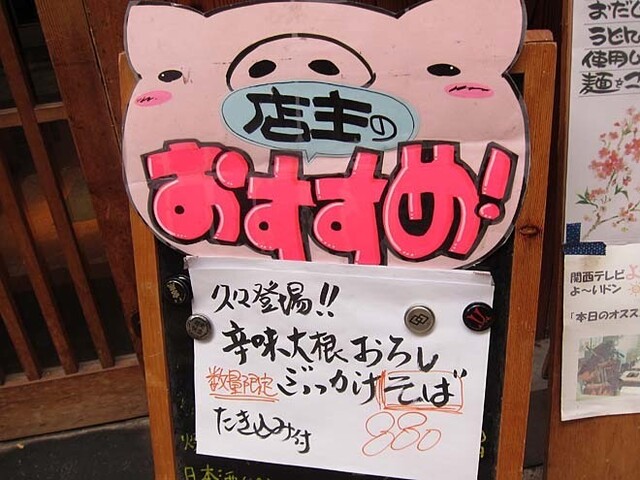 店主の
おすすめ!
久々登場!!
辛味大根おろし
数量限定 ぶっかけそば
たき込み付 880
日本酒
おだし
うどん
使用し
麺も
関西テレビ
よ〜いドン
「本日のオススメ